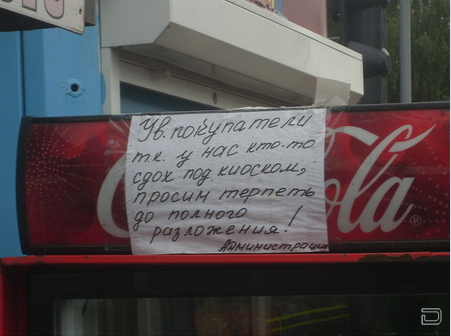 Ув. покупатели
т.к. у нас кто-то
сдох под киоском,
просим терпеть
до полного
разложения!
Администрация
ola
®